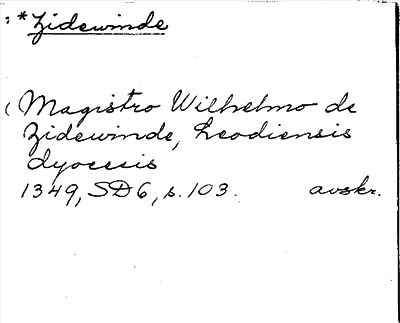 : * Zidewinde
( Magistro Wilhelmo de
Zidewinde, Leodiensis
dyocesis
1349, SD 6, s. 103. avskr.